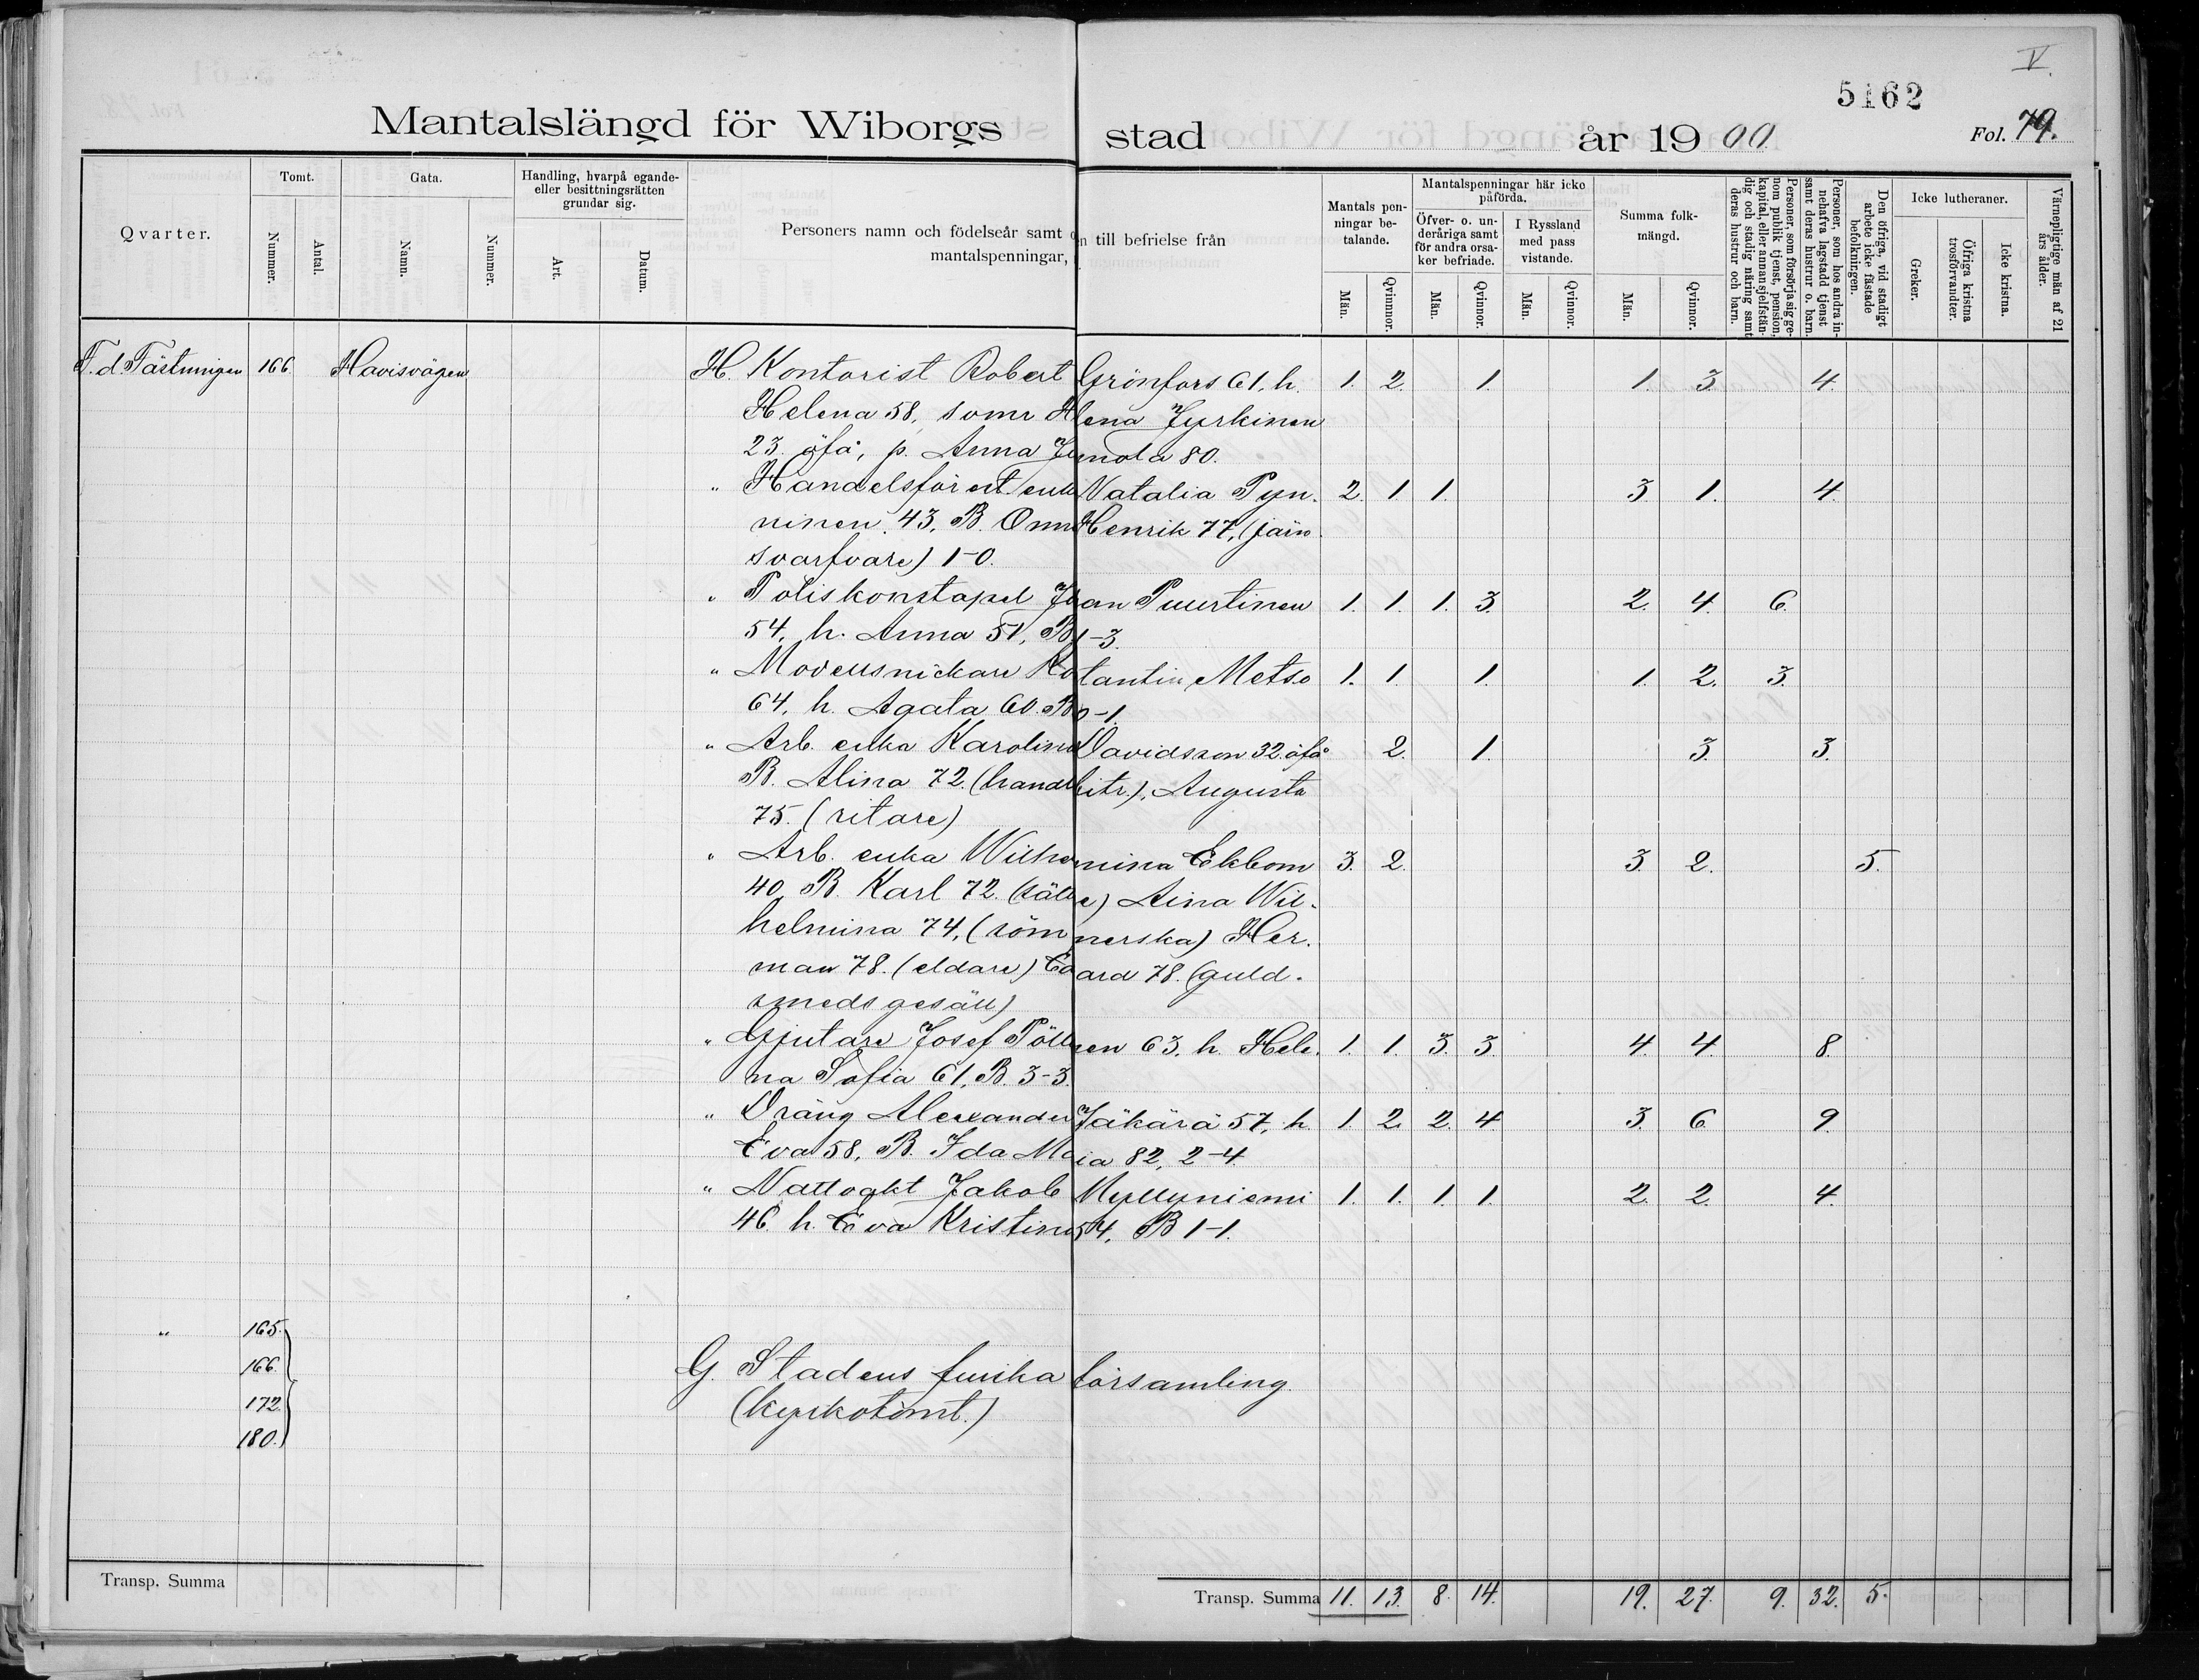 V.
5162
Mantalslängd för Wiborgs stad år 1900. Fol. 79.
Qvarter.
Tomt.
Nummer.
Antal.
Gata.
Namn.
Nummer.
Handling, hvarpå egande-
eller besittningsrätten
grundar sig.
Art.
Datum.
Personers namn och födelseår samt till befrielse från
mantalspenningar,
Mantals pen-
ningar be-
talande.
Män.
Qvinnor.
Mantalspenningar här icke
påförda.
Öfver- o. un-
deråriga samt
för andra orsa-
ker befriade.
Män.
Qvinnor.
I Ryssland
med pass
vistande.
Män.
Qvinnor.
Summa folk-
mängd.
Män.
Qvinnor.
Personer, som försörja sig ge-
nom publik tjenst, pension,
kapital, eller annan sjelfstän-
dig och stadig näring samt
deras hustrur och barn.
Personer, som hos andra in-
nehafva lagstadd tjenst
samt deras hustrur o. barn.
Den öfriga, vid stadigt
arbete icke fästade
befolkningen.
Icke lutheraner.
Greker.
Öfriga kristna
trosförvandter.
Icke kristna.
Värnepligtige män af 21
års ålder.
F. d. Fästningen 166 Havisvägen H. Kontorist Robert Grönfors 61, h. 1. 2. 1. 1. 3. 4.
Helena 58, Jyrkinen
23. öfå, p. Anna 80.
" Natalia Pyn- 2. 1. 1. 3. 1. 4.
ninen 43, B. Henrik 77, (järn-
svarfvare) 1-0.
" Poliskonstapel Puurtinen 1. 1. 1. 3. 2. 4. 6.
54, h. Anna 51, B. 1-3.
" Modellsnickare Metso 1. 1. 1. 1. 2. 3.
64, h. Agata 60. B. 0-1.
" Arb. enka Karolina Davidsson 32 öfå 2. 1. 3. 3.
B. Alina 72. (handelsbitr.), Augusta
75. (ritare)
" Arb. enka Wilhelmina Ekbom 3. 2. 3. 2. 5.
40, B. Karl 72. Aina Wil-
helmina 74, (sömmerska) Her-
man 78. (eldare) 78. (guld-
smedsgesäll)
" Gjutare Josef 63, h. Hele- 1. 1. 3. 3. 4. 4. 8.
na Sofia 61, B. 3-3.
" Dräng Alexander Jäkärä 57, h. 1. 2. 2. 4 3. 6. 9.
Eva 58, B. Ida Maria 82, 2-4.
" Nattvakt Jakob Myllyniemi 1. 1. 1. 1. 2. 2. 4.
46. h. Eva Kristina 54, B 1-1.
" 165.
166.
172.
180.
G. Stadens finska församling.
(kyrkotomt.)
Transp. Summa
Transp. Summa 11. 13. 8. 14. 19. 27. 9. 32. 5.